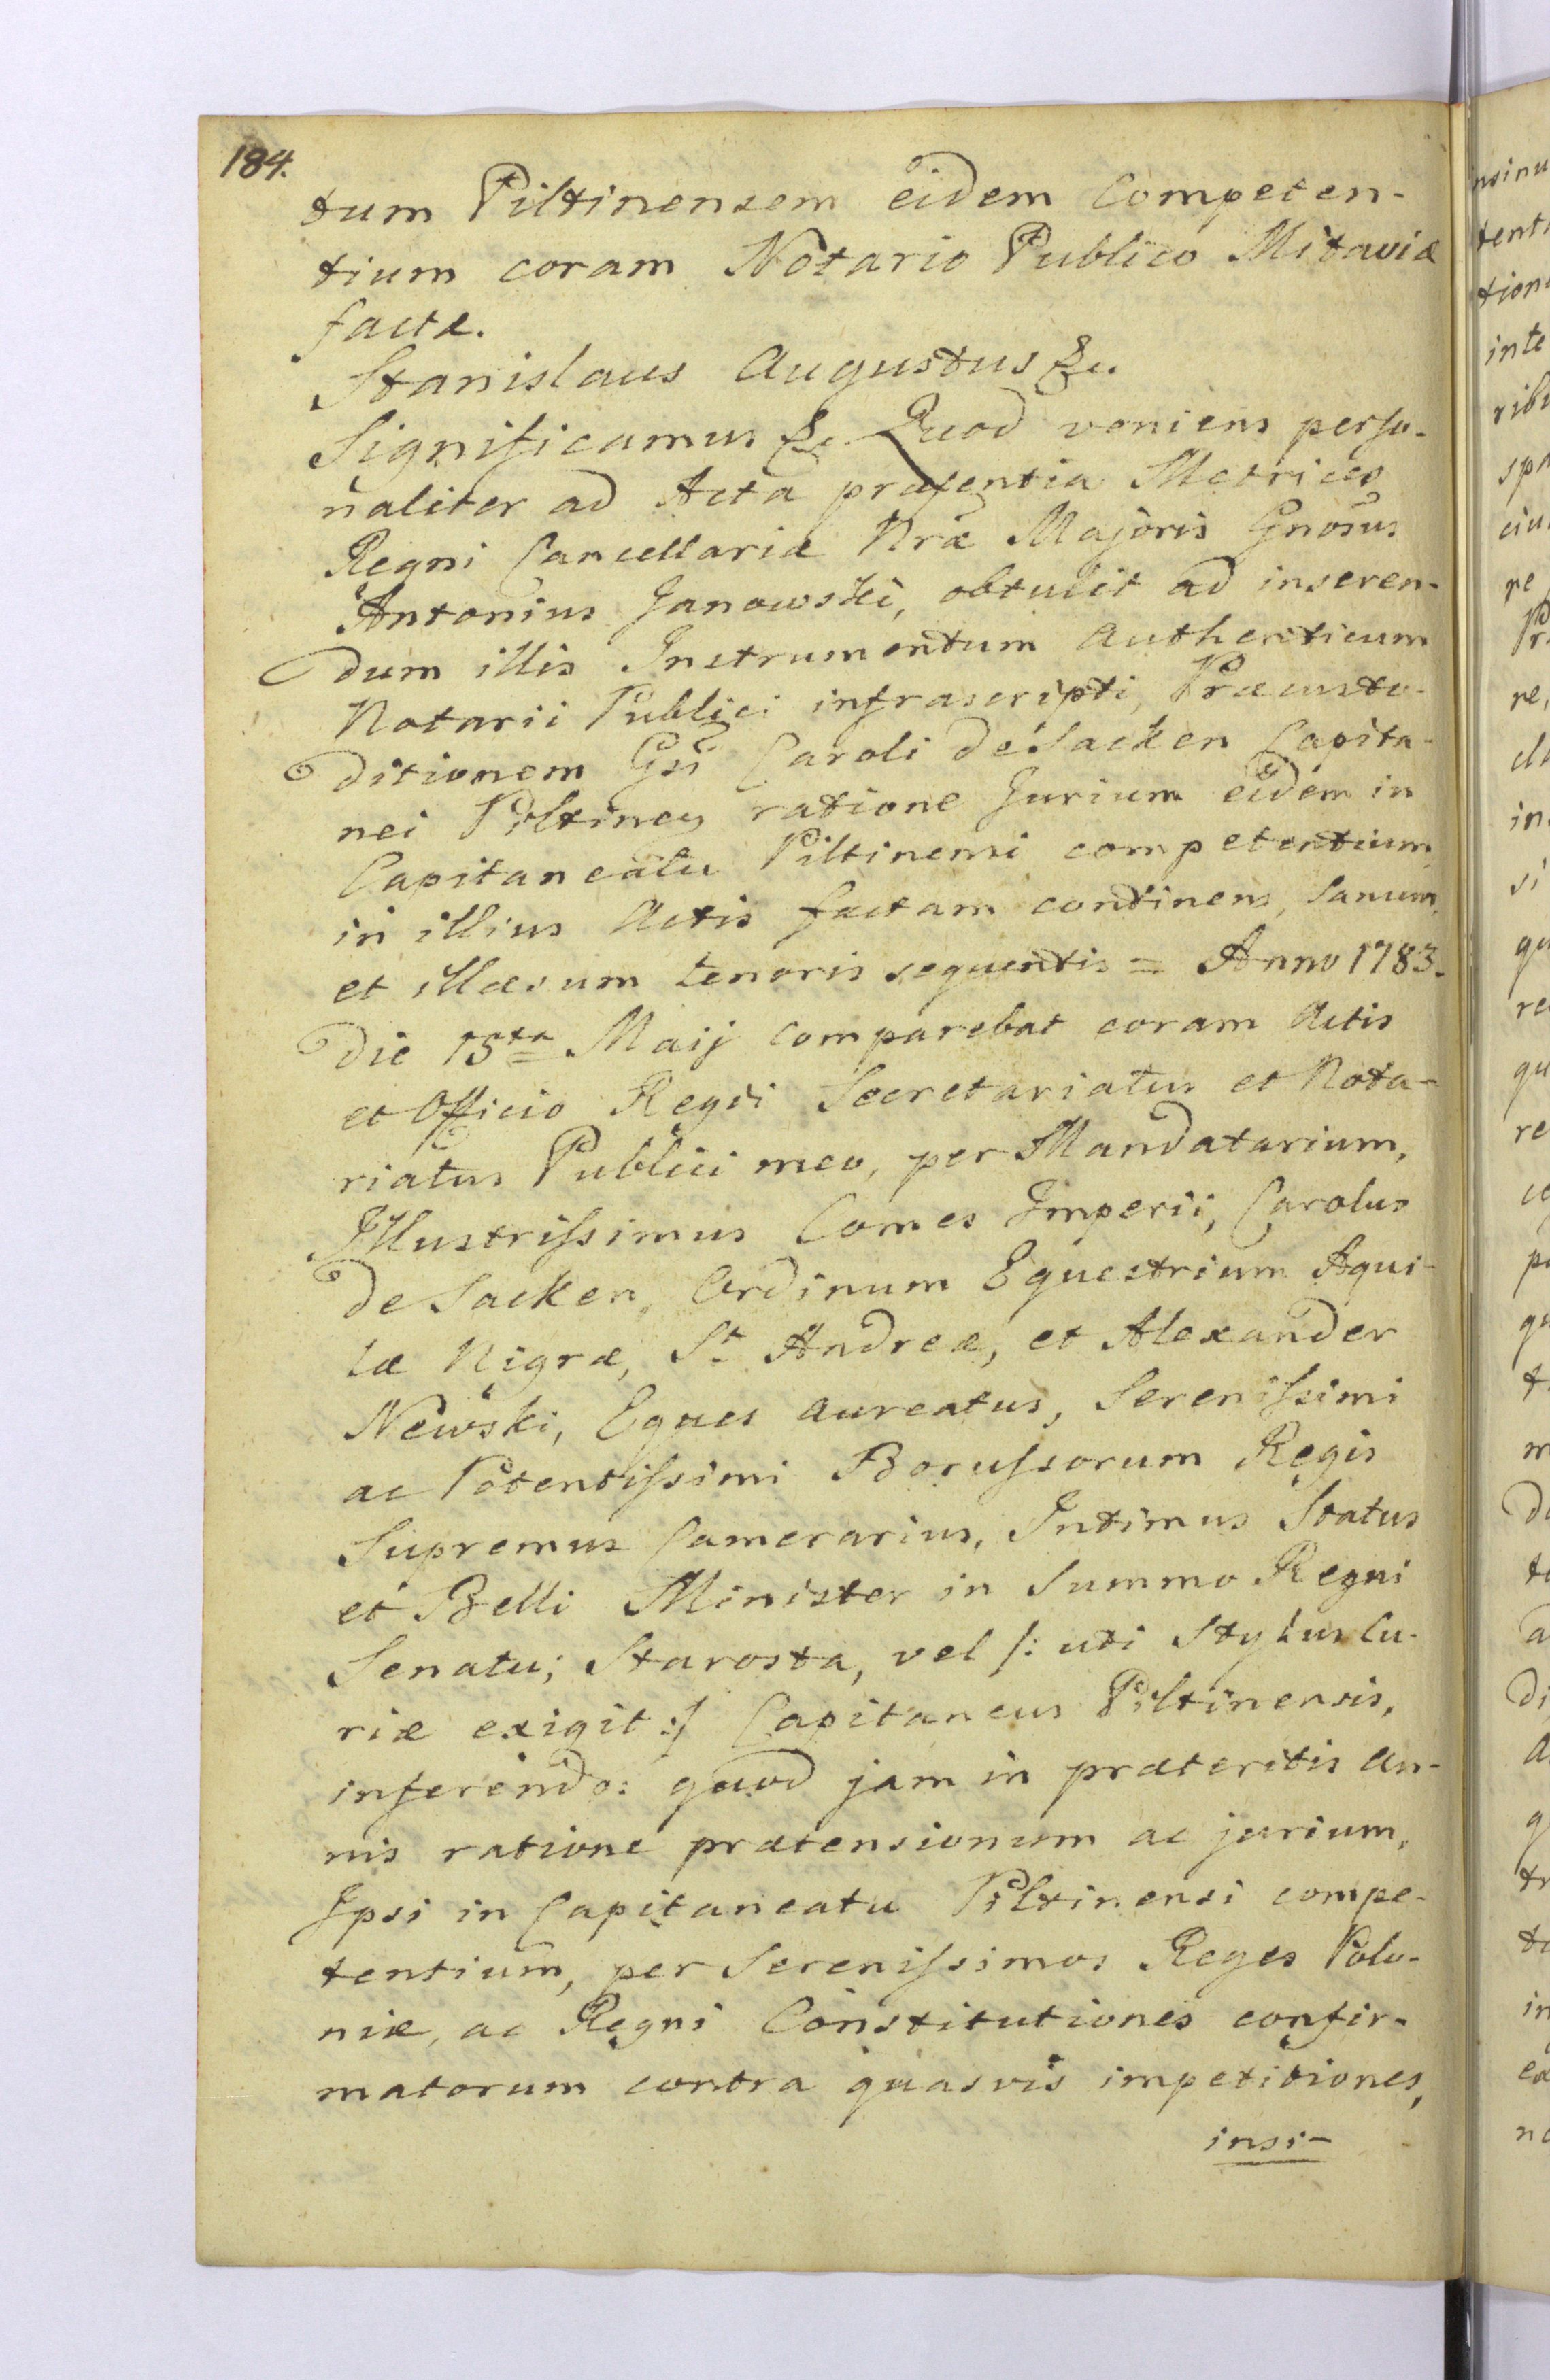 184.
tum Piltinensem eidem Competen-
tium coram Notario Publico Mitaviæ
factæ.
Stanislaus Augustus &c.
Significamus &c. Quod veniens perso-
naliter ad Acta præsentia Metrices
Regni Cancellariæ Nræ Majoris Gnosus
Antonius Janowski, obtulit ad inseren-
dum illis Instrumentum Authenticum
Notarii Publici infrascripti, Præcusto-
ditionem Gsi Caroli de Sacken Capita-
nei Piltineñ ratione Jurium eidem in
Capitaneatu Piltinensi competentium,
in illius Actis factam continens, sanum,
et illæsum tenoris sequentis = Anno 1783.
Die 15ta Maij Comparebat coram Actis
et Officio Regii Secretariatus et Nota-
riatus Publici meo, per Mandatarium,
Illustrissimus Comes Imperii, Carolus
de Sacken, Ordinum Equestrium Aqui-
læ Nigræ, St Andreæ, et Alexander
Newski, Eques Aureatus, Serenissimi
ac Potentissimi Borussorum Regis
Supremus Camerarius, Intimus Status
et Belli Minister in Summo Regni
Senatu; Starosta, vel /: uti Stylus Cu-
riæ exigit :/ Capitaneus Piltinensis,
inferendo: quod jam in præteritis an-
nis ratione prætensionum ac jurium,
Ipsi in Capitaneatu Piltinensi compe-
tentium, per Serenissimos Reges Polo-
niæ, ac Regni Constitutiones confir-
matorum contra quasvis impetitiones,
insi-